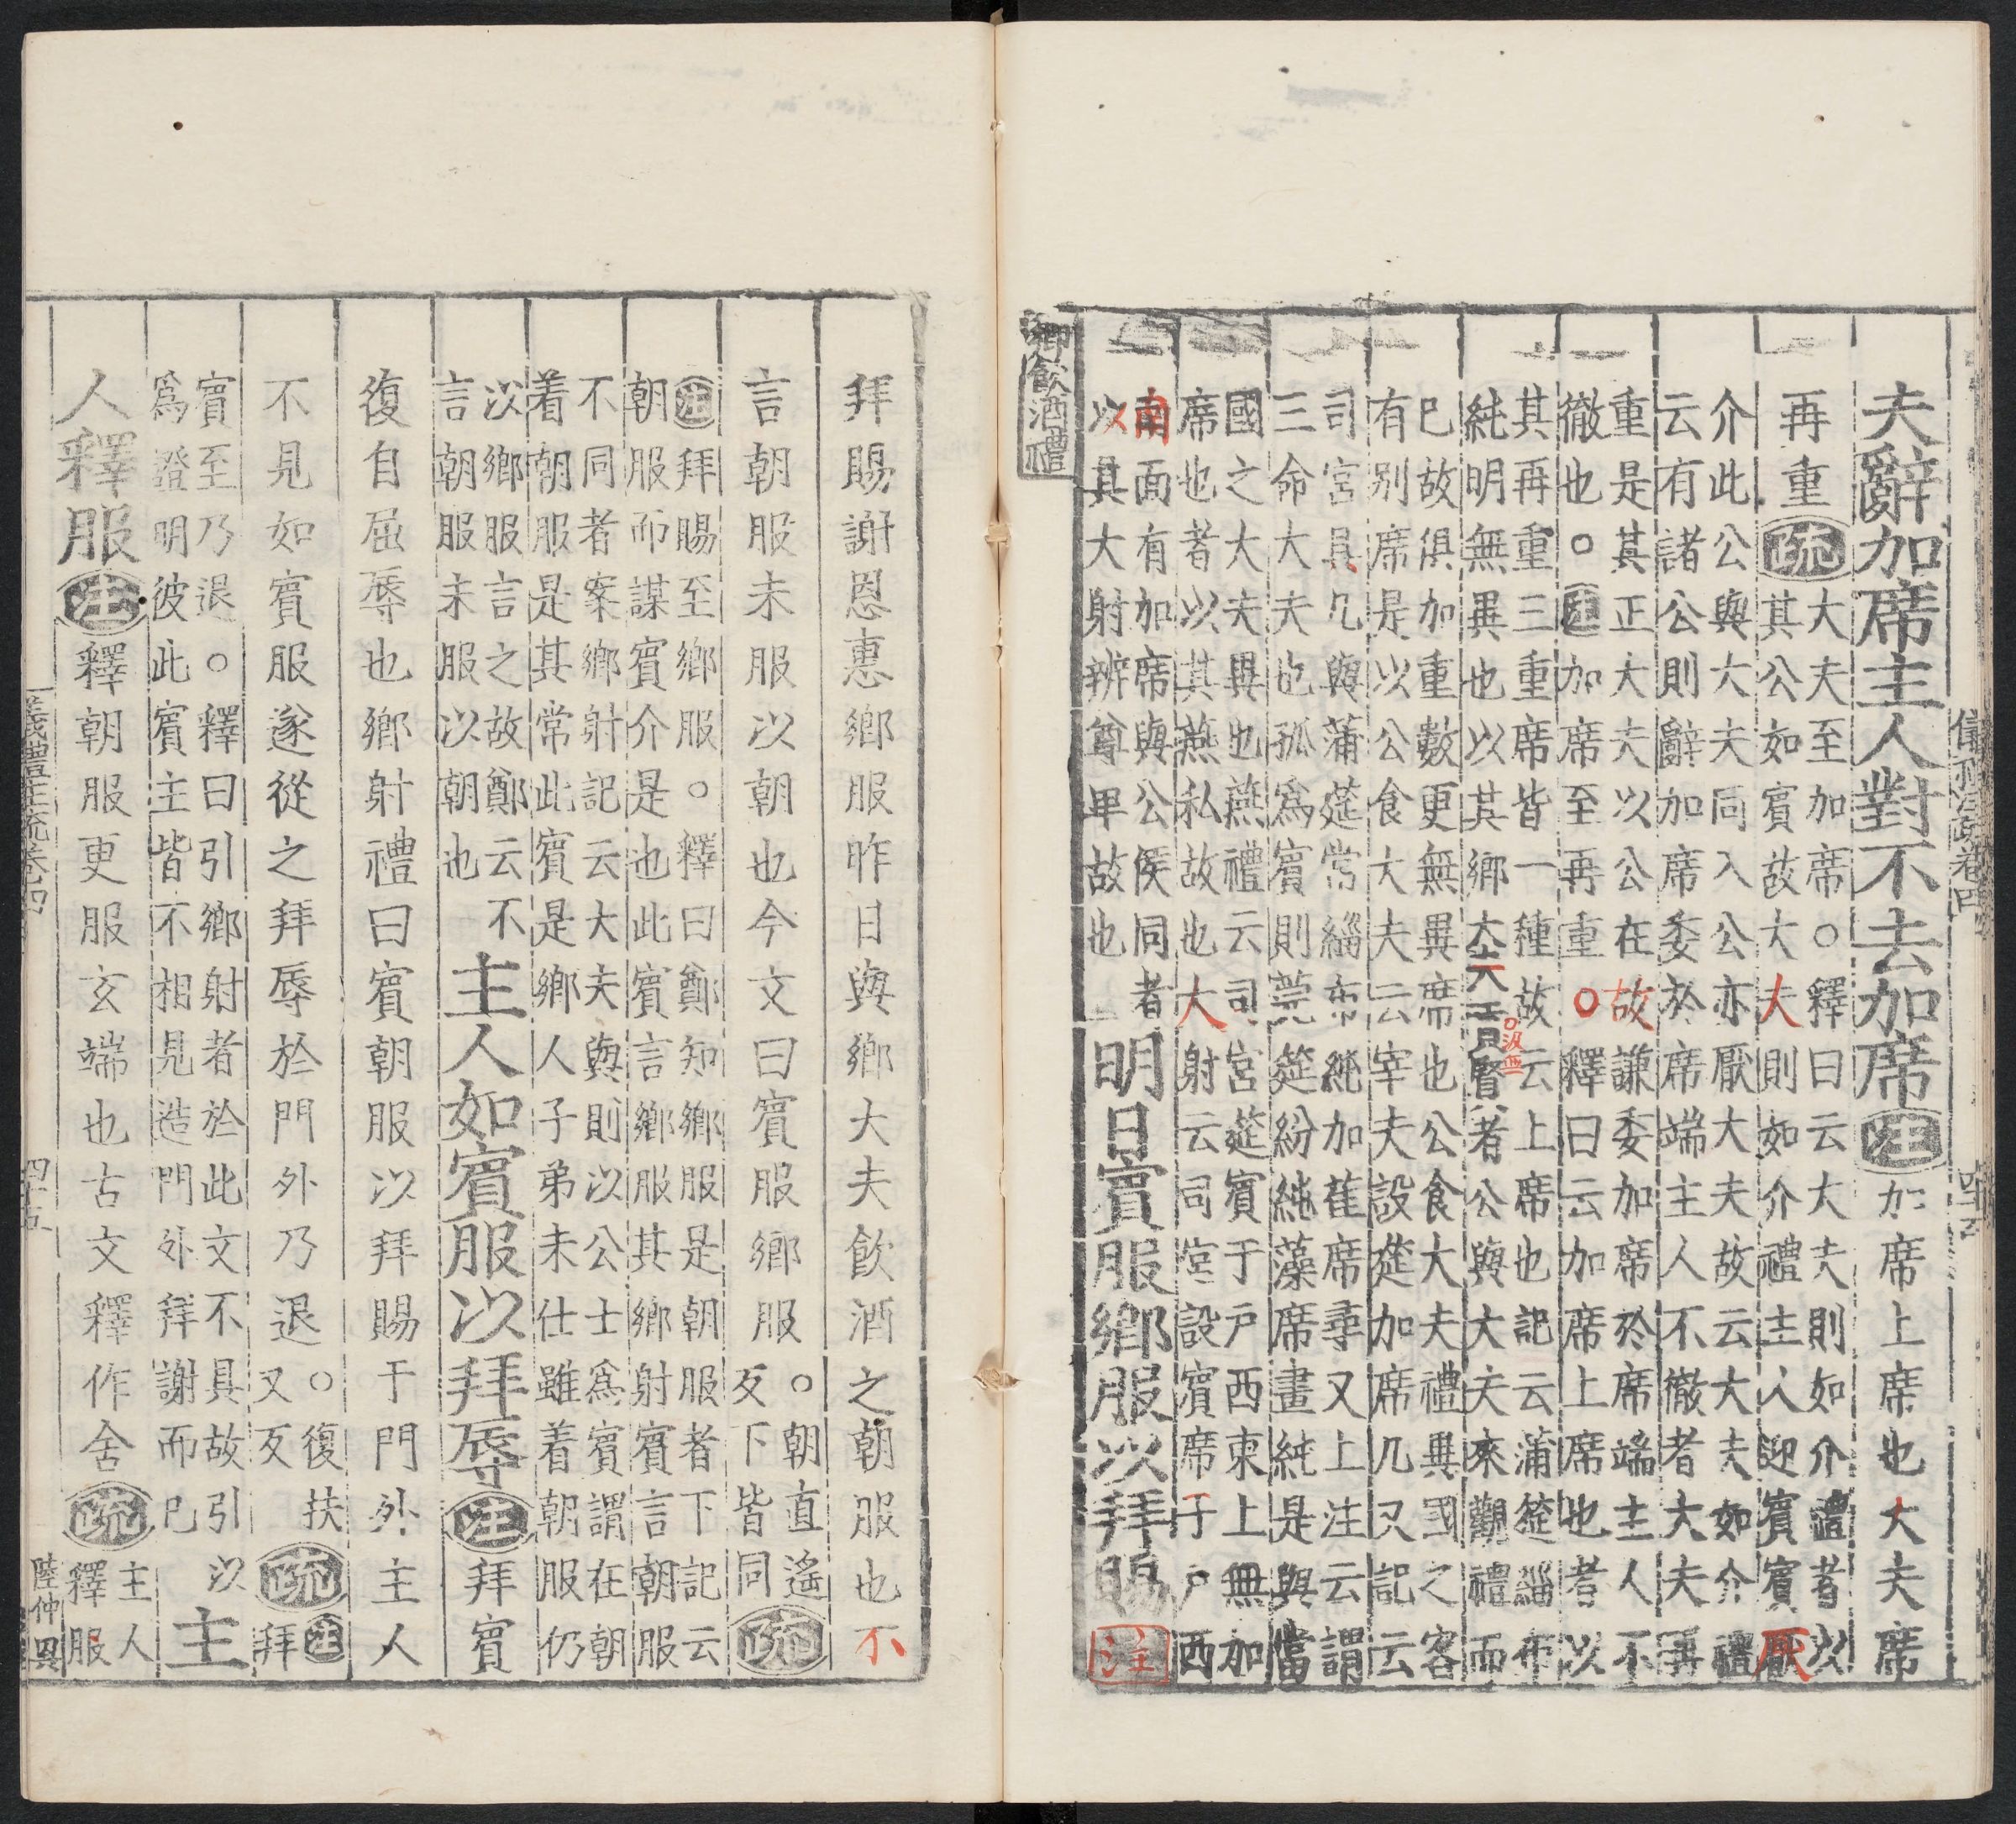 夫辭加席主人對不去加席注加席上席也大夫席
再重疏大夫至加席○釋曰云大夫則如介禮者以
其公如賓故大夫則如介禮主人迎賓賓厭
介此公與大夫同入公亦厭大夫故云大夫如介禮
云有諸公則辭加席委於席端主人不徹者大夫再
重是其正大夫以公在故謙委加席於席端主人不
徹也○注加席至再重○釋曰云加席上席也者以
其再重三重席皆一種故云上席也記云蒲筵緇布
純明無異也以其鄉大夫賓賢者公與大夫來觀禮而
已故俱加重數更無異席也公食大夫禮異國之客
有別席是以公食大夫云宰夫設筵加席几又記云
司宮具几與蒲筵常緇布純加萑席尋又上注云謂
三命大夫也孤為賓則莞筵紛純藻席畫純是與當
國之大夫異也燕禮云司宮筵賓于戶西東上無加
席也者以其燕私故也大射云司宮設賓席于戶西
南面有加席與公侯同者
以其大射辨尊卑故也
明日賓服鄉服以拜賜注
鄉飲酒禮
儀禮注疏卷四
四十五
拜賜謝恩惠鄉服昨日與鄉大夫飲酒之朝服也不
言朝服未服以朝也今文曰賓服鄉服○朝直遙
反下皆同疏
注拜賜至鄉服○釋曰鄭知鄉服是朝服者下記云
朝服而謀賓介是也此賓言鄉服其鄉射賓言朝服
不同者案鄉射記云大夫與則以公士為賓謂在朝
着朝服是其常此賓是鄉人子弟未仕雖着朝服仍
以鄉服言之故鄭云不
言朝服未服以朝也
主人如賓服以拜辱注拜賓
復自屈辱也鄉射禮曰賓朝服以拜賜于門外主人
不見如賓服遂從之拜辱於門外乃退○復扶
又反疏注拜
賓至乃退○釋曰引鄉射者於此文不具故引以
為證明彼此賓主皆不相見造門外拜謝而已
主
人釋服注釋朝服更服玄端也古文釋作舍疏主人
釋服
儀禮注疏卷四
四十五
陸仲興